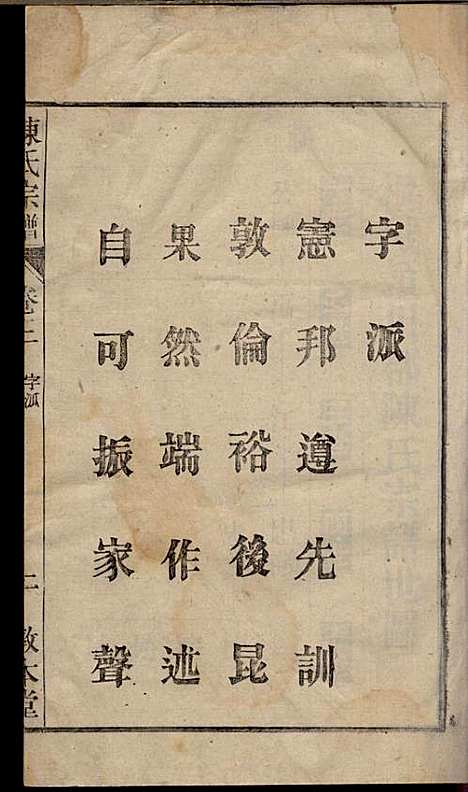 字派
憲邦遵先訓
敦倫裕後昆
果然端作述
自可振家聲
陳氏宗譜
卷二 字派
二 敦本堂